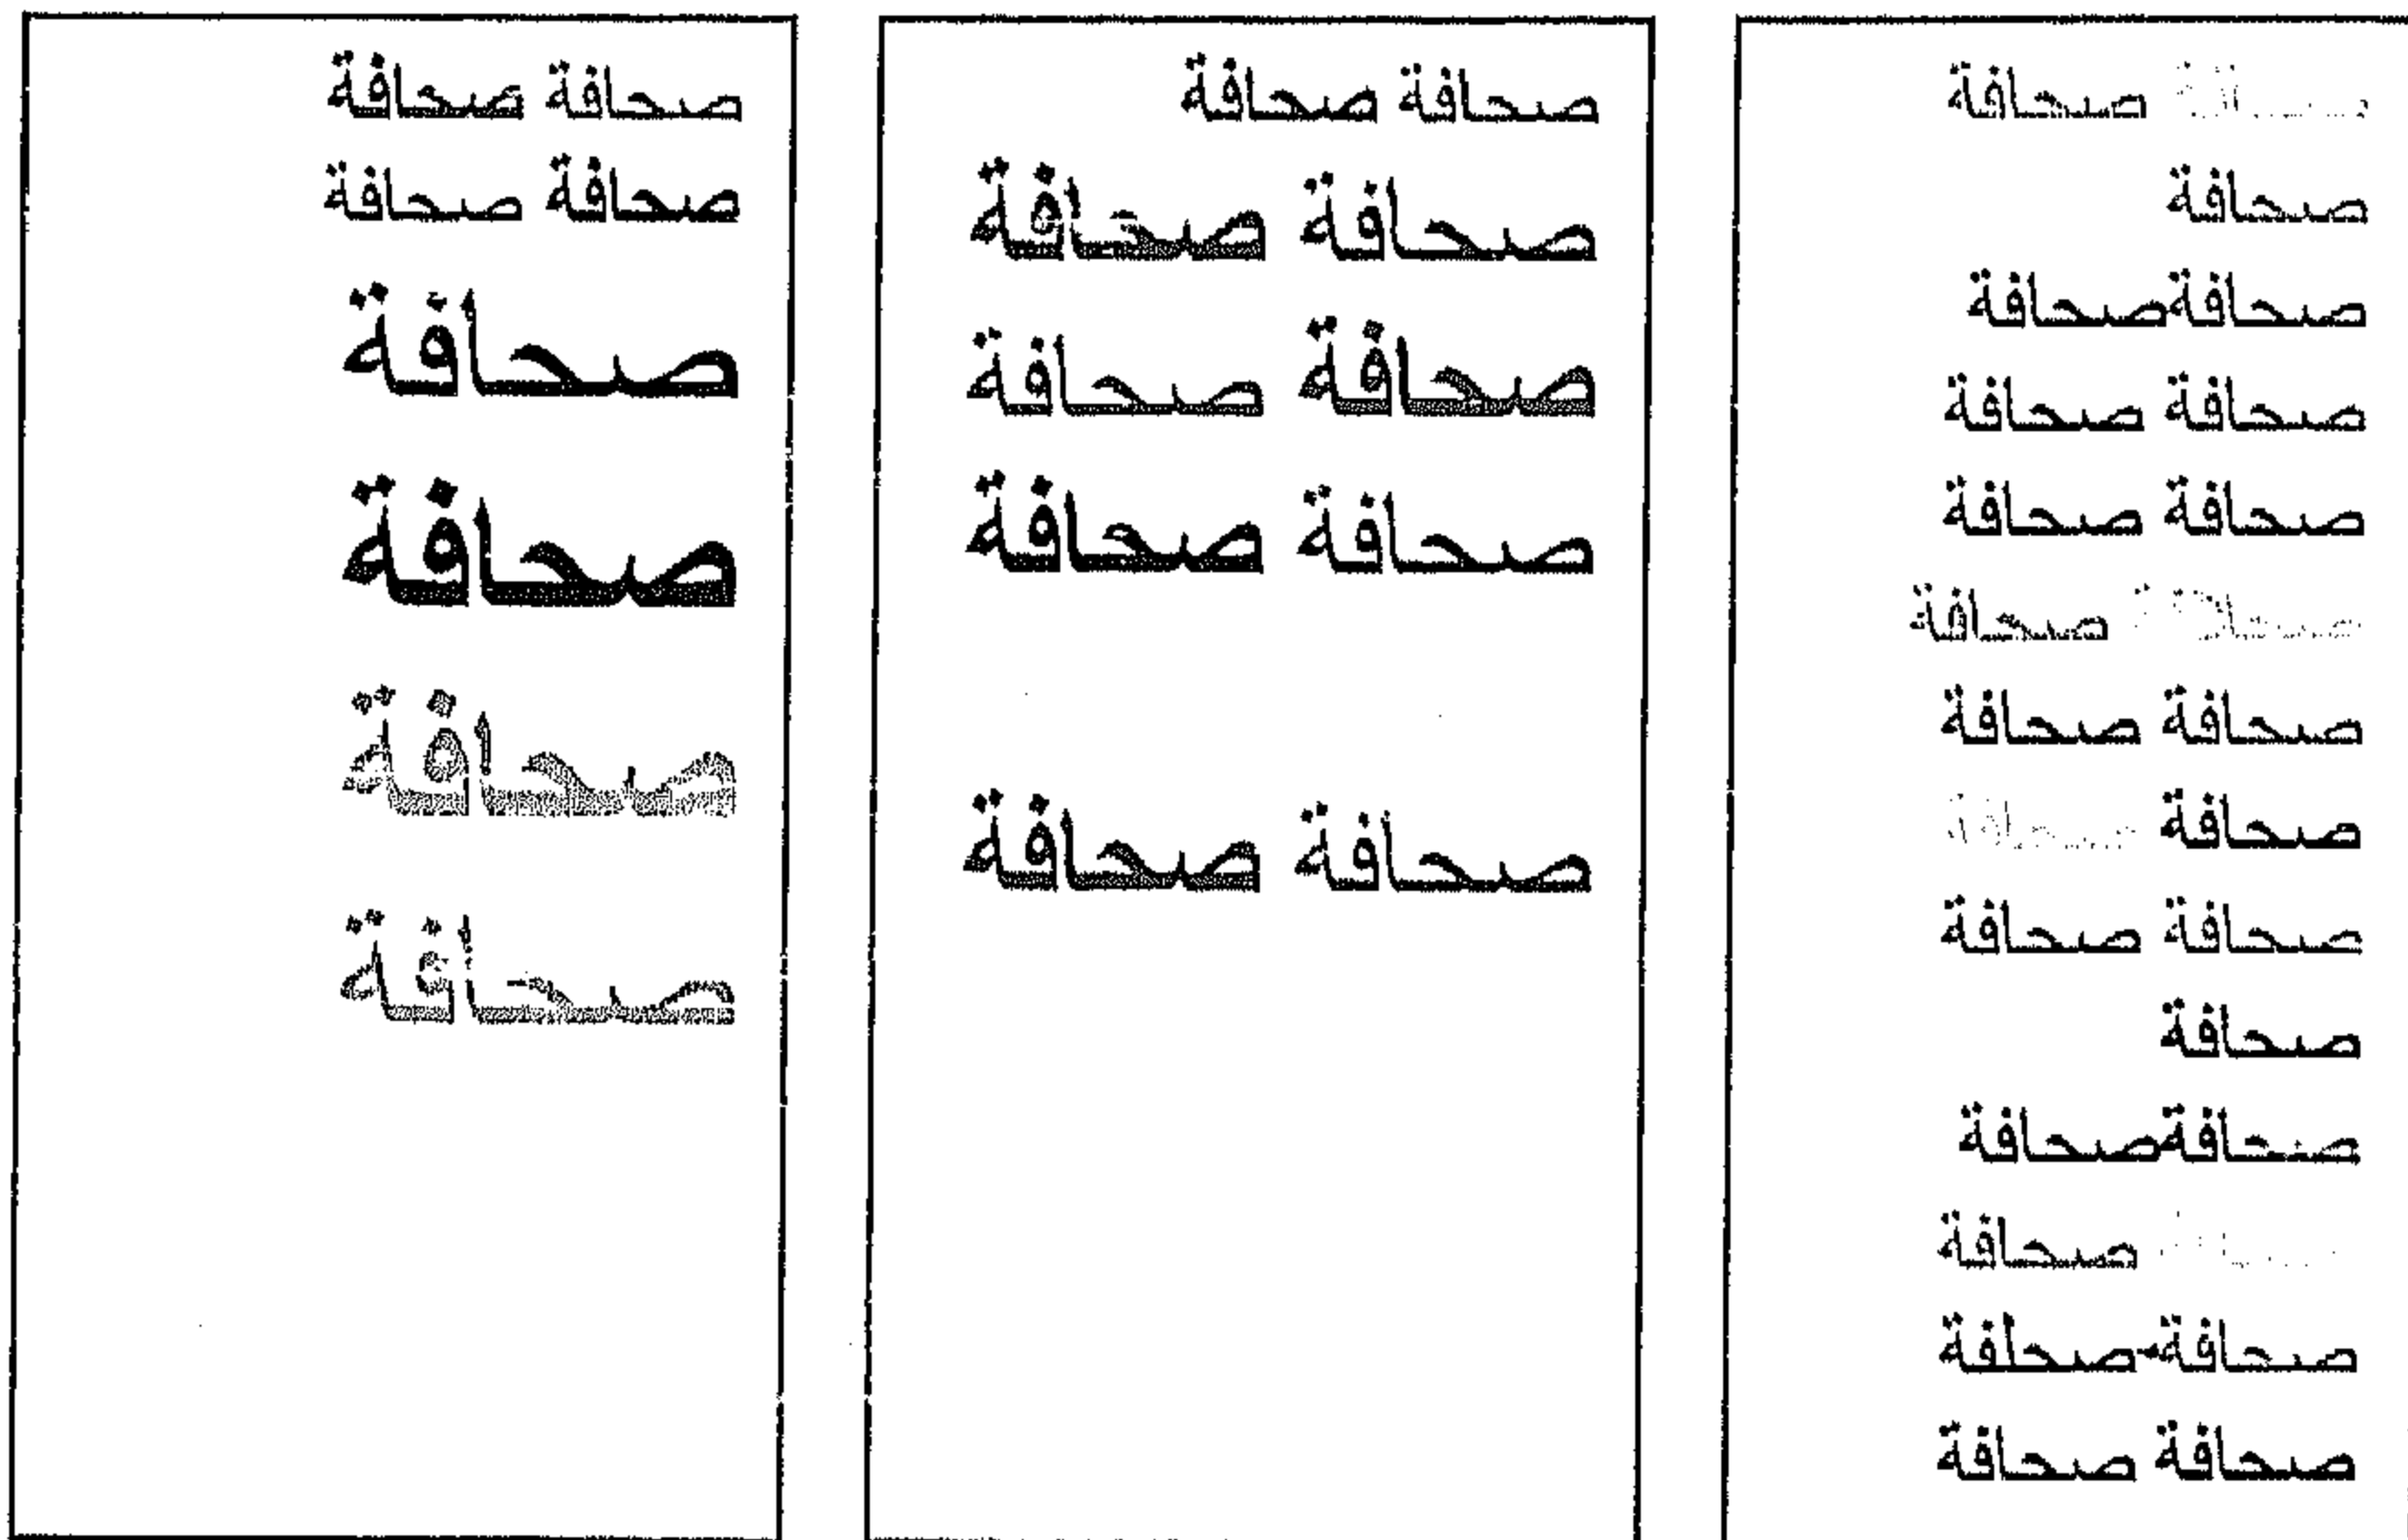 صحافة
صحافة
صحافةصحافة
صحافة صحافة
صحافة صحافة
صحافة صحافة
صحافة صحافة
صحافة صحافة
صحافة صحافة
صحافة
صحافةصحافة
صحافة
صحافة-صحلفة
صحافة صحافة
صحافة صحافة
صحافة صحافة
صحافة صحافة
صحافة صحافة
صحافة صحافة
صحافة صحافة
صحافة صحافة
صحافة
صحافة
صحافة
صحافة